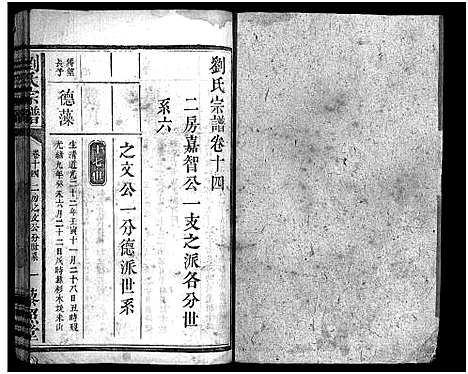 劉氏宗譜卷十四
二房嘉智公一支之派各分世
系六
之文公一分德派世系
十七世
長子
德藻
生清道光二十二年壬寅十一月二十八日丑時歿
光緒九年癸未六月二十二日戌時葬杉木垅米山
劉氏宗譜
卷十四
二房之文公分世系
一